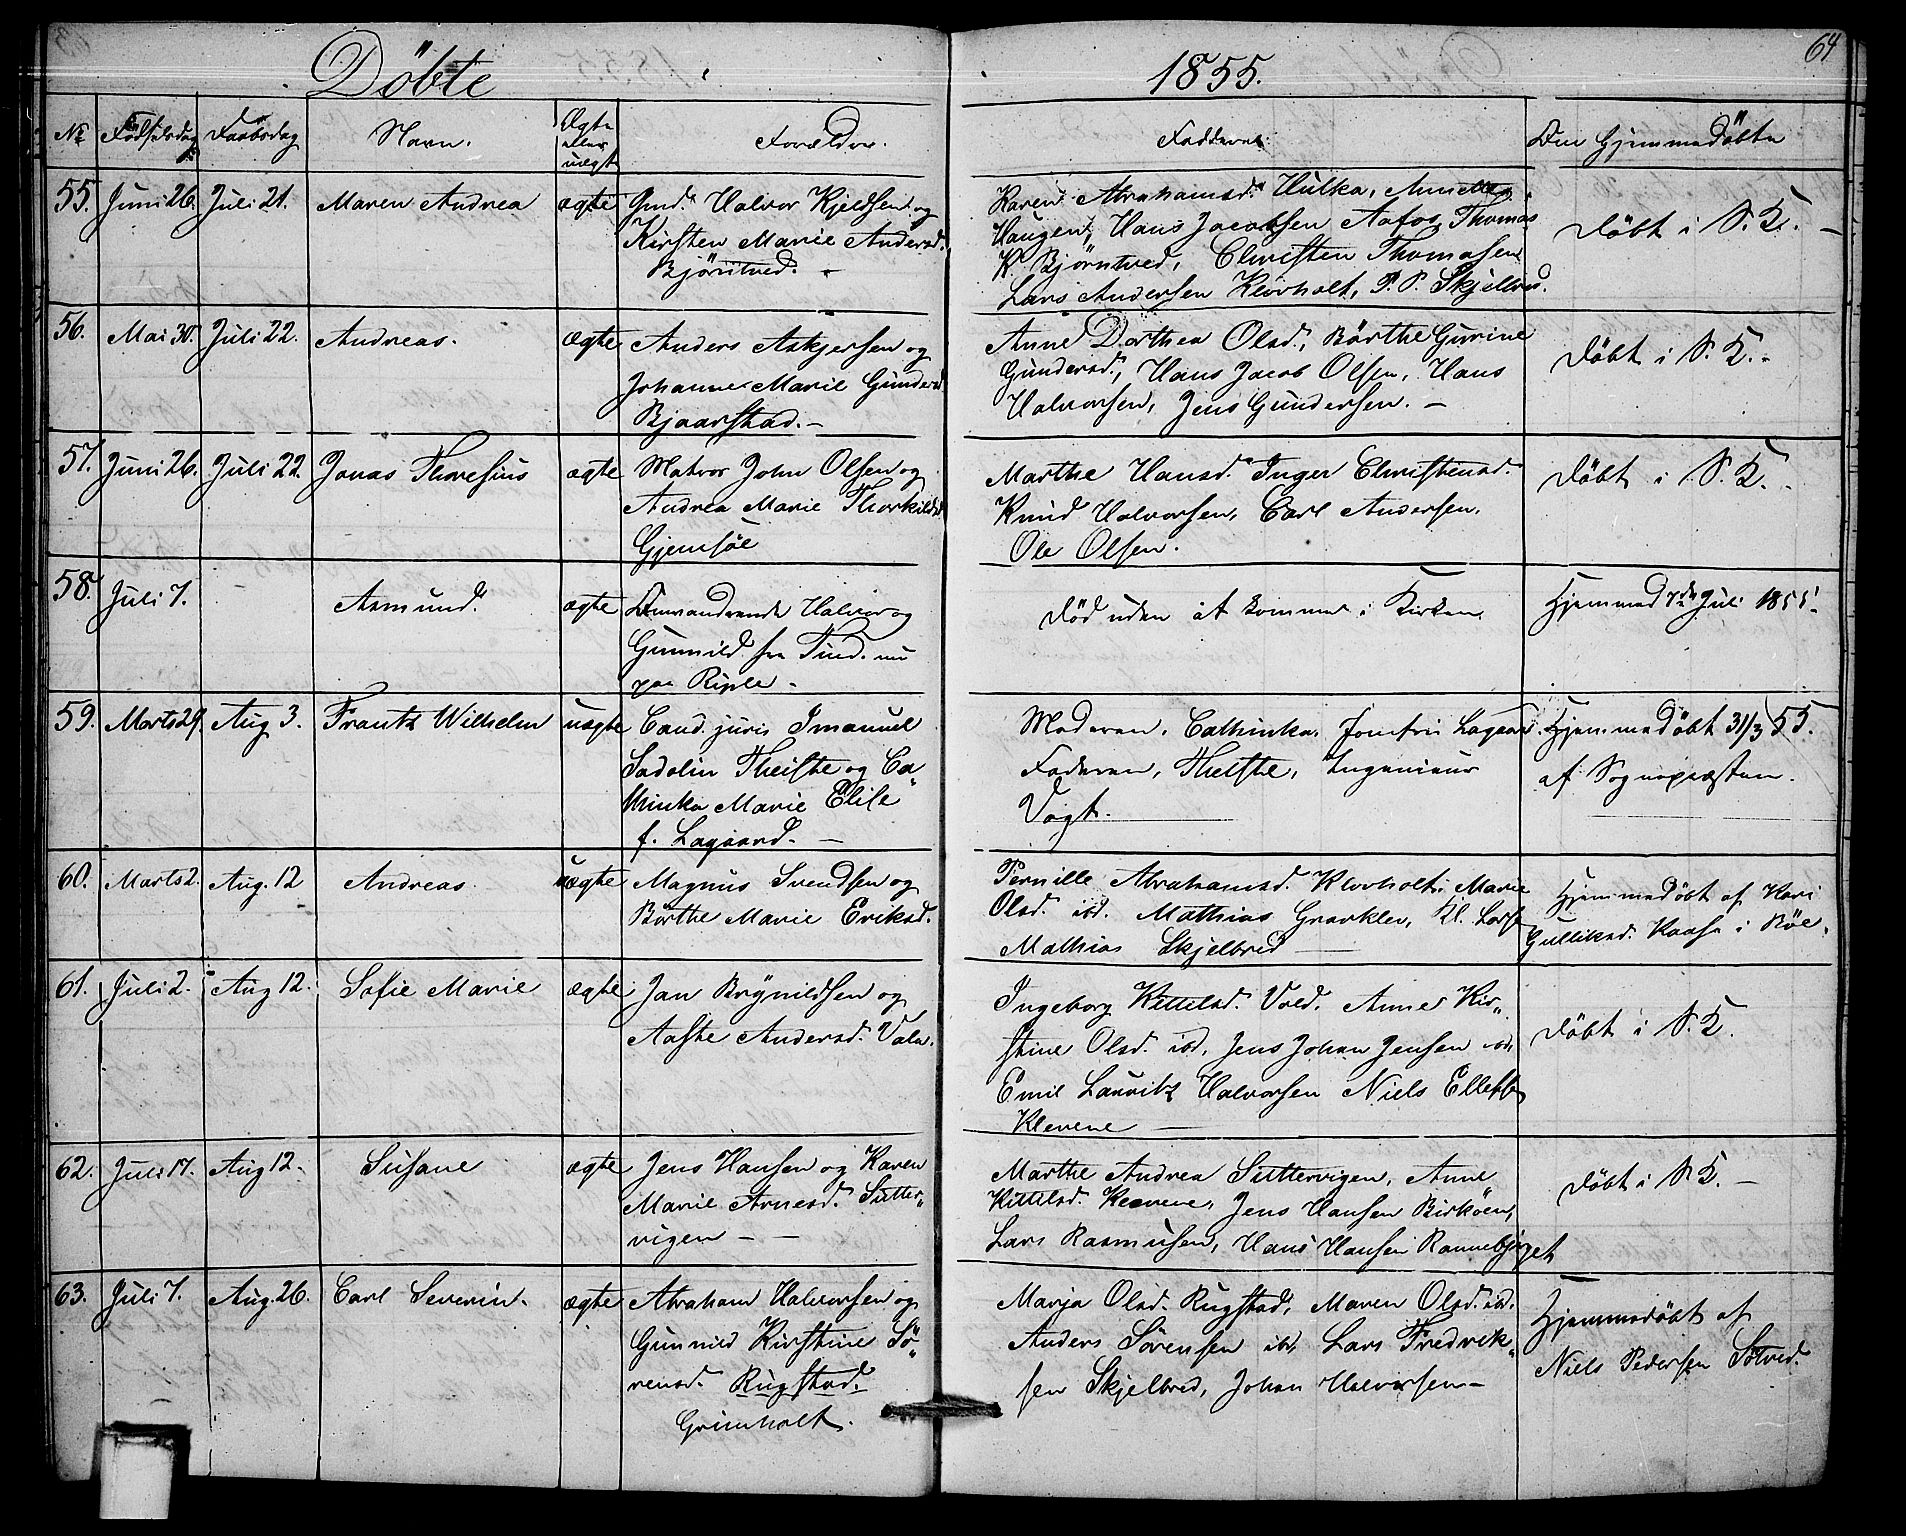 Döbte
1855.
64
No
Fødselsdag
Daabsdag
Navn.
Ægte
eller
uægte
Forældre.
Faddere
Om Hjemmedöbte
55.
Juni 26.
Juli 21.
Maren Andrea
ægte
Gmd. Halvor Kjeldsen og
Kirsten Marie Andersd.
Bjørntved.
Karen Abrahamsd. Hulka, Anne
Haugen, Hans Jacobsen Aafos, Thomas
K. Bjørntved, Christen Thomasen
Lars Andersen Klovholt, P. P. Skjelbred.
döbt i S. K.
56.
Mai 30.
Juli 22.
Andreas.
ægte
Anders Askjersen og
Johanne Marie Gundersd
Bjaarstad.
Anne Dorthea Olsd., Börthe Gurine
Gundersd., Hans Jacob Olsen, Hans
Halvorsen, Jens Gundersen.
döbt i S. K.
57.
Juni 26.
Juli 22.
Jonas Thoresius
ægte
Matros John Olsen og
Andrea Marie Thorkildsd
Gjemsöe
Marthe Hansd. Inger Christensd.
Knud Halvorsen, Carl Andersen,
Ole Olsen.
döbt i S. K.
58.
Juli 7.
Asmund.
ægte
Omvandrende Halvor og
Gunnild fra Tind. nu
paa Riple
död uden at komme i Kirken
Hjemmed 7de Juli 1855.
59.
Marts 29.
Aug 3.
Frantz Wilhelm
uægte
Cand. juris Imanuel
Sadolin Theiste og Ca
thinka Marie Elise
f. Lagaard.
Moderen, Cathinka, Jomfru Lagaard.
Faderen, Theiste, Ingenieur
Vogt.
Hjemmedöbt 31/3 55.
af Sognepresten.
60.
Marts 2.
Aug. 12
Andreas.
uægte
Magnus Svendsen og
Börthe Marie Eriksd.
Pernille Abrahamsd. Klovholt, Marie
Olsd. ibd. Mathias Gravklev, Kl. Larsen
Mathias Skjelbred
Hjemmedöbt af Kari
Gulliksd. Kaasa i Böe.
61.
Juli 2.
Aug 12.
Sofie Marie
ægte
Jan Brynildsen og
Aaste Andersd. Vold.
Ingeborg Kittilsd. Vold. Anne Kir„
stine Olsd. ibd, Jens Johan Jensen ibd,
Emil Lauritz Halvorsen Niels
Klevene
döbt i S. K.
62.
Juli 17.
Aug 12.
Susane
ægte
Jens Hansen og Karen
Marie Arnesd. Sutter„
vigen
Marthe Andrea Suttervigen, Anne
Kittilsd. Klevene, Jens Hansen Birköen,
Lars Rasmusen, Hans Hansen Rannebjerget
döbt i S K.
63.
Juli 7.
Aug. 26.
Carl Severin.
ægte
Abraham Halvorsen og
Gunnild Kirstine Sö„
rensd. Rugstad.
Grimholt.
Marja Olsd. Rugstad, Maren Olsd. ibd.
Anders Sörensen ibd, Lars Fredrik„
sen Skjelbred, Johan Halvorsen
Hjemmedöbt af
Niels Pedersen Sötved.